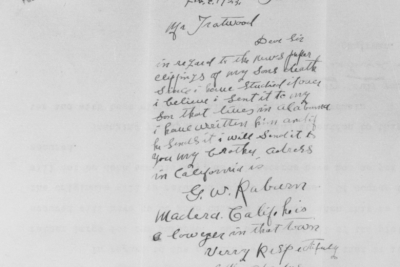 Mr Tratwood
Dear Sir
in regard to the news paper
clippings of my sons death
since i have studied
i believe i sent it to my
son that lives in alabama
i have written him and if
he sends it i will send it to
you my brother adress
in California is
G. W. Raburn
Madera. Calif he is
a lowyer in that town
Verry Respectfuly